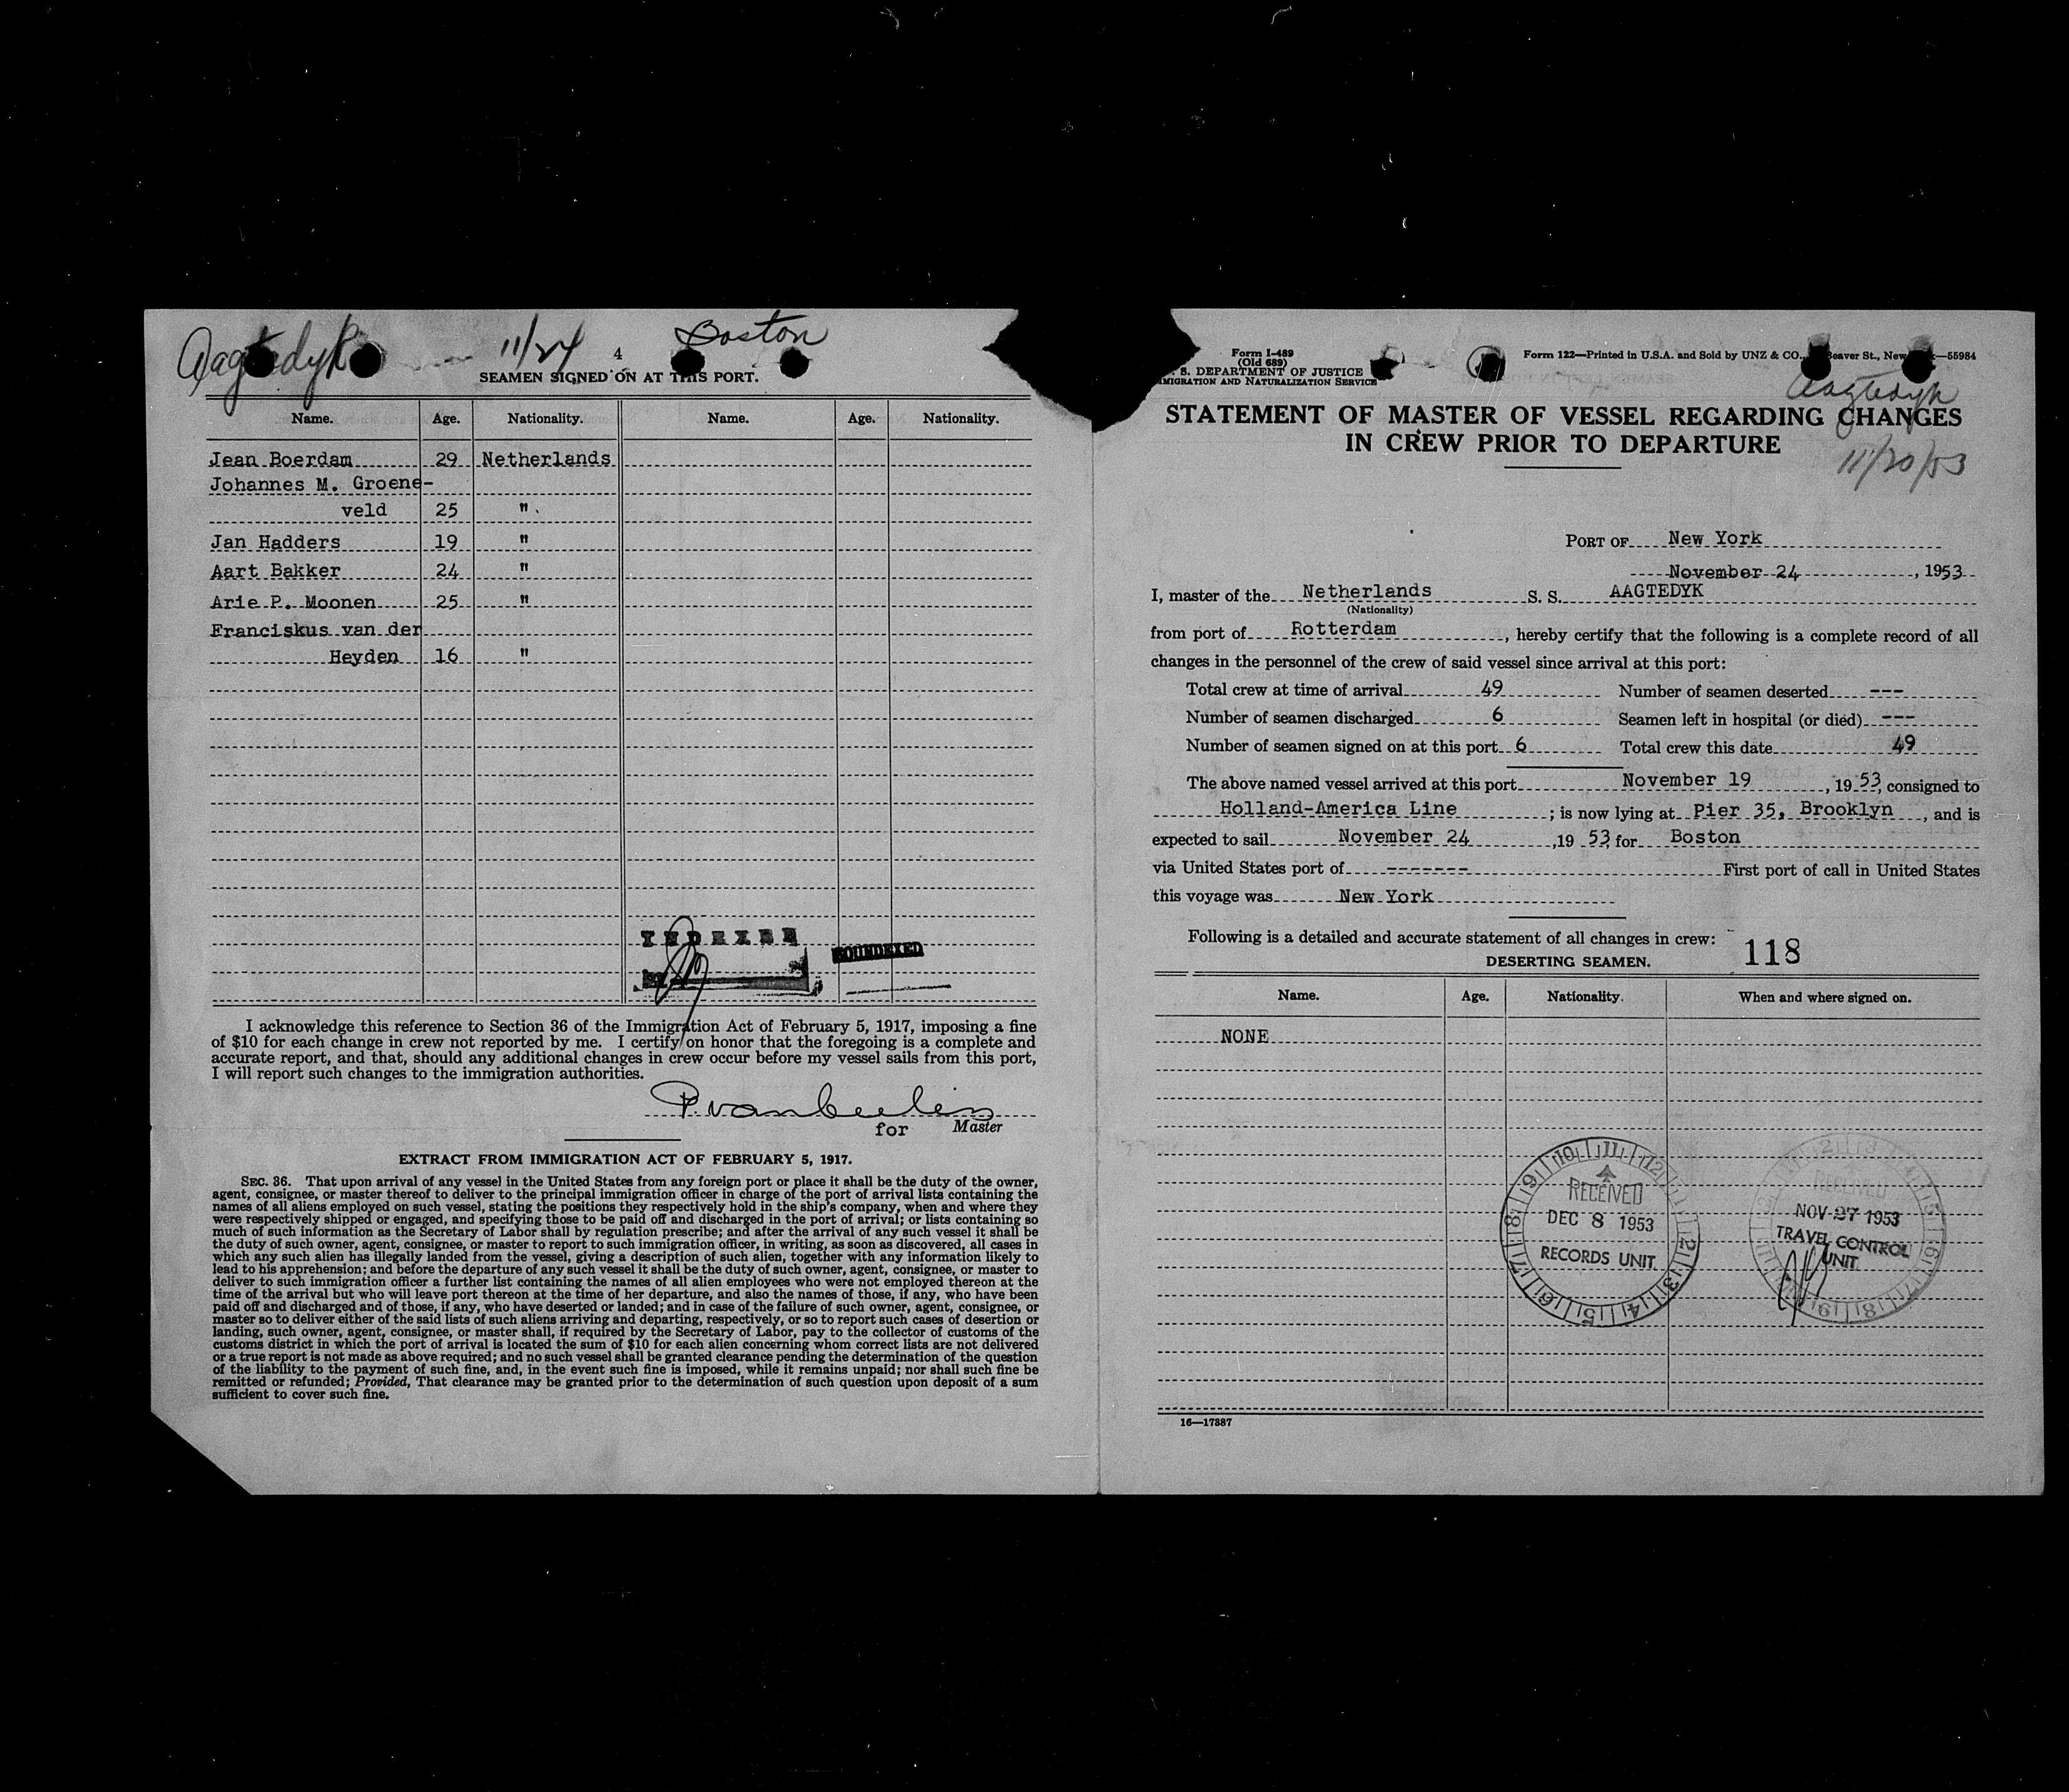 Aagtedyk 11/24 Boston
4
SEAMEN SIGNED ON AT THIS PORT.
Name. Age. Nationality. Name. Age. Nationality.
Jean Boerdam 29 Netherlands
Johannes M. Groene-
veld 25 "
Jan Hadders 19 "
Aart Bakker 24 "
Arie P. Moonen 25 "
Franciskus van der
Heyden 16 "
INDEXED
SOUNDEXED
I acknowledge this reference to Section 36 of the Immigration Act of February 5, 1917, imposing a fine
of $10 for each change in crew not reported by me. I certify on honor that the foregoing is a complete and
accurate report, and that, should any additional changes in crew occur before my vessel sails from this port,
I will report such changes to the immigration authorities.
for Master
EXTRACT FROM IMMIGRATION ACT OF FEBRUARY 5, 1917.
SEC. 36. That upon arrival of any vessel in the United States from any foreign port or place it shall be the duty of the owner,
agent, consignee, or master thereof to deliver to the principal immigration officer in charge of the port of arrival lists containing the
names of all aliens employed on such vessel, stating the positions they respectively hold in the ship's company, when and where they
were respectively shipped or engaged, and specifying those to be paid off and discharged in the port of arrival; or lists containing so
much of such information as the Secretary of Labor shall by regulation prescribe; and after the arrival of any such vessel it shall be
the duty of such owner, agent, consignee, or master to report to such immigration officer, in writing, as soon as discovered, all cases in
which any such alien has illegally landed from the vessel, giving a description of such alien, together with any information likely to
lead to his apprehension; and before the departure of any such vessel it shall be the duty of such owner, agent, consignee, or master to
deliver to such immigration officer a further list containing the names of all alien employees who were not employed thereon at the
time of the arrival but who will leave port thereon at the time of her departure, and also the names of those, if any, who have been
paid off and discharged and of those, if any, who have deserted or landed; and in case of the failure of such owner, agent, consignee, or
master so to deliver either of the said lists of such aliens arriving and departing, respectively, or so to report such cases of desertion or
landing, such owner, agent, consignee, or master shall, if required by the Secretary of Labor, pay to the collector of customs of the
customs district in which the port of arrival is located the sum of $10 for each alien concerning whom correct lists are not delivered
or a true report is not made as above required; and no such vessel shall be granted clearance pending the determination of the question
of the liability to the payment of such fine, and, in the event such fine is imposed, while it remains unpaid; nor shall such fine be
remitted or refunded; Provided, That clearance may be granted prior to the determination of such question upon deposit of a sum
sufficient to cover such fine.
Form I-489
(Old 689)
S. DEPARTMENT OF JUSTICE
IMMIGRATION AND NATURALIZATION SERVICE
Form 122—Printed in U.S.A. and Sold by UNZ & CO., Beaver St., New —55984
Aagtedyk
STATEMENT OF MASTER OF VESSEL REGARDING CHANGES
IN CREW PRIOR TO DEPARTURE
11/20/53
PORT OF New York
November 24, 1953
I, master of the Netherlands S. S. AAGTEDYK
(Nationality)
from port of Rotterdam, hereby certify that the following is a complete record of all
changes in the personnel of the crew of said vessel since arrival at this port:
Total crew at time of arrival 49 Number of seamen deserted ---
Number of seamen discharged 6 Seamen left in hospital (or died) ---
Number of seamen signed on at this port 6 Total crew this date 49
The above named vessel arrived at this port November 19, 1953, consigned to
Holland-America Line; is now lying at Pier 35, Brooklyn, and is
expected to sail November 24, 1953 for Boston
via United States port of ------- First port of call in United States
this voyage was New York
Following is a detailed and accurate statement of all changes in crew: 118
DESERTING SEAMEN.
Name. Age. Nationality. When and where signed on.
NONE
RECEIVED
DEC 8 1953
RECORDS UNIT
RECEIVED
NOV 27 1953
TRAVEL CONTROL
UNIT
16—17387